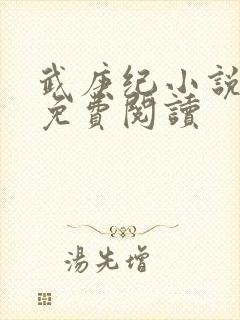 武庚纪小說
免費閱讀
湯先增